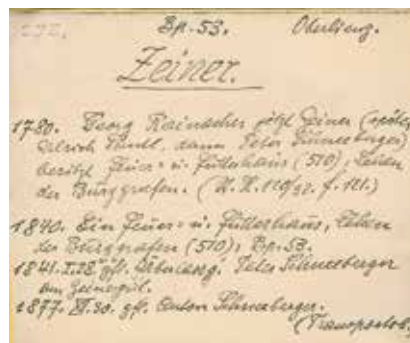 Bp. 53. Oberlienz.
Zeiner.
1780. Georg Rainacher jetzt Zeiner (später
Ulrich dann Peter Schneeberger)
besitzt Feuer- u. Futterhaus (510), Lehen
der Burggrafen. (K. K. 110/32. f. 121.)
1840. Ein Feuer- u. Futterhaus, Lehen
der Burggrafen (510), Bp. 53.
1841. I. 28. Peter Schneeberger
am Zeinergütl.
1877. XI. 30. Anton Schneeberger.